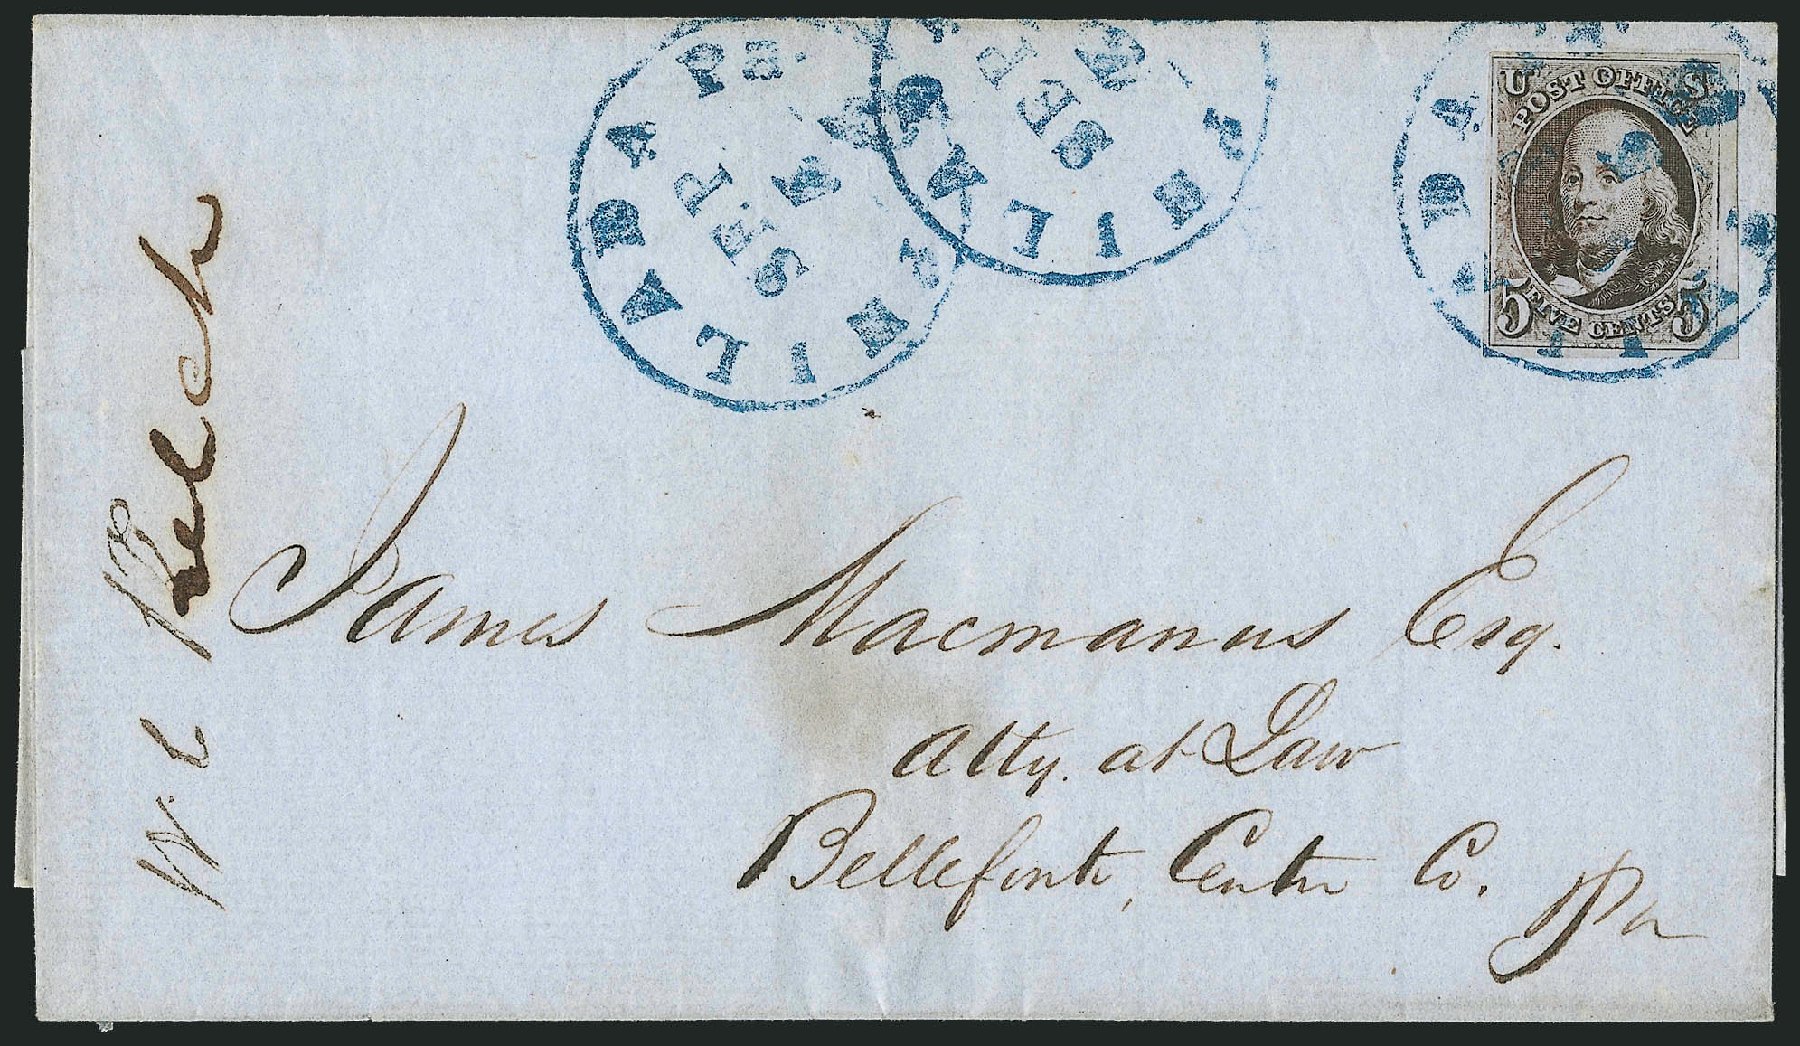 PHILADA Pa.
SEP
PHILADA
SEP
U S
POST OFFICE
5 FIVE CENTS 5
W. C. Beech
James Macmanus Esq.
Atty. at Law
Bellefonte, Centre Co.
Pa